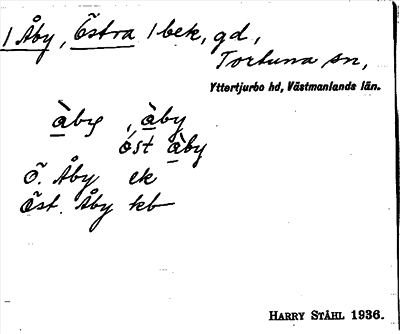 1 Åby, Östra 1 bek, gd,
Tortuna sn,
Yttertjurbo hd, Västmanlands län.
àby, àby
öst àby
Ö. Åby ek
Öst. Åby kb
HARRY STÅHL 1936.